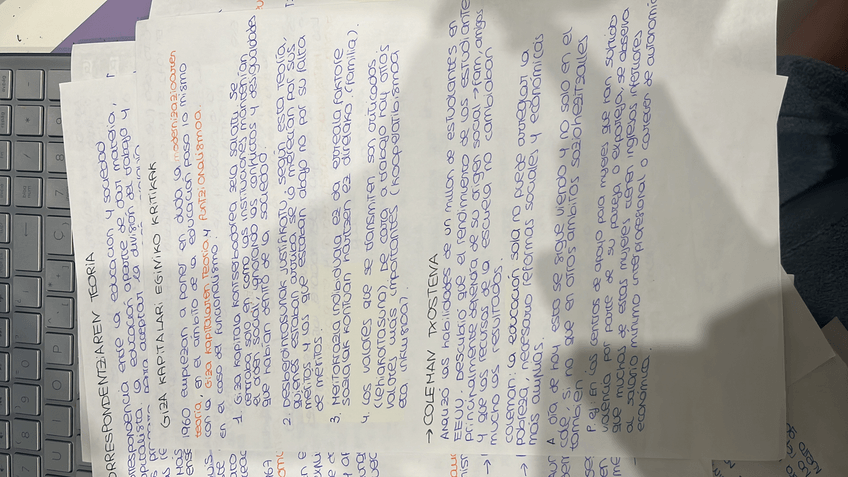 CORRESPONDENTZIAREN TEORIA
correspondencia entre la educación y sociedad
capitalista, la educación aparte de dar materia,
para aceptar la división del trabajo y
GIZA KAPITALARI EGINIKO KRITIKAK
1960 empiezan a poner en duda la modernizazioaren
teoria, en ámbito de la educación pasa lo mismo
con la Giza kapitalaren teoria y funtzionalismoa.
en el caso de funcionalismo:
1. Giza kapitala kontserbadorea zela salatu
centraba solo en como las instituciones mantenían
el orden social, ignorando los conflictos y desigualdades
que habían dentro de la sociedad.
2. Desberdintasunak justifikatu: según esta teoría,
quienes estaban arriba se lo merecían por sus
méritos y los que estaban abajo no por su falta
de méritos.
3. Meritokrazia individual ez da errealak faktore
sozialak kontuan hartzen ez direlako. (familia).
4. Los valores que se transmiten son anticuados
(lehiakortasuna). De cara a trabajo hay otros
valores más importantes (kooperatibismoa
eta inklusioa).
→ COLEMAN TXOSTENA
Analizó las habilidades de un millón de estudiantes en
EEUU. Descubrió que el rendimiento de los estudiantes
principalmente dependía de su origen social → fam, amigos
y que los recursos de la escuela no cambiaban
mucho los resultados.
Coleman: la educación sola no puede arreglar la
pobreza, necesario reformas sociales y económicas
más amplias.
A día de hoy esto se sigue viendo y no solo en el
cole, si no que en otros ámbitos sozohezitzailes
también.
P.ej. En los centros de apoyo para mujeres que han sufrido
violencia por parte de su pareja o expareja, se observa
que muchas de estas mujeres tienen ingresos inferiores
al salario mínimo interprofesional o carecen de autonomía
económica.